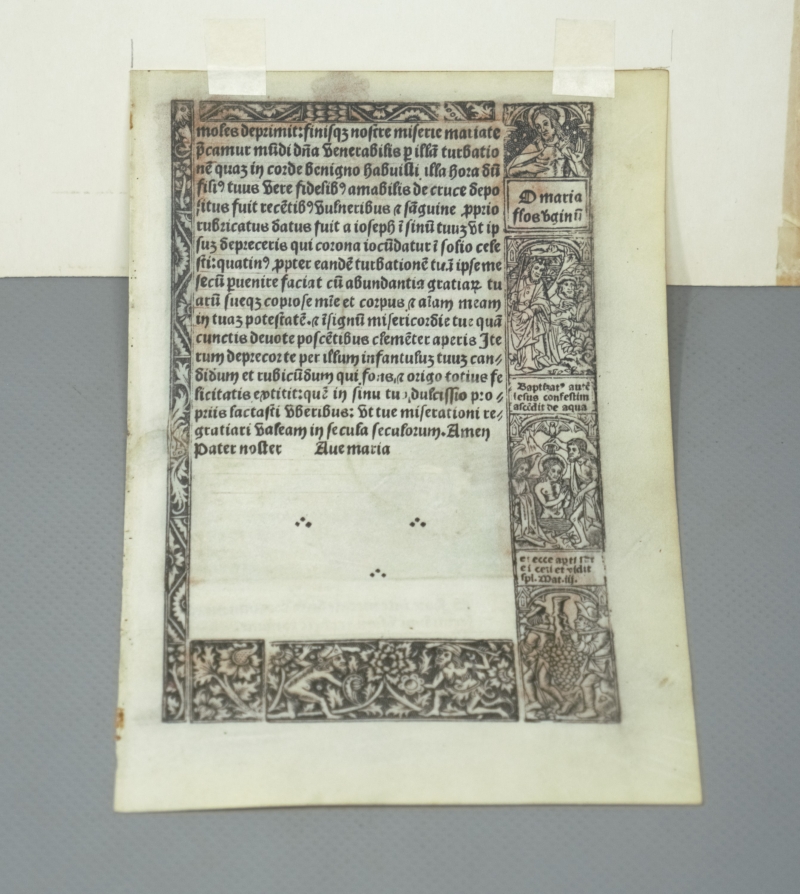 moles deprimit: finisqꝫ nostre miserie mariate
p̄camur mūdi dña venerabilis ꝑ illā turbatio
nē quaꝫ in corde benigno habuisti illa hora dū
filiꝰ tuus vere fidelibꝰ amabilis de cruce depo
situs fuit recētibꝰ vulneribus ⁊ sāguine ꝓprio
rubricatus datus fuit a ioseph ī sinū tuuꝫ vt ip
suꝫ depreceris qui corona iocūdatur ī solio cele
sti: quatinꝰ ꝓpter eandē turbationē tuā ipse me
secū ꝑuenire faciat cū abundantia gratiaꝝ tu
arū sueqꝫ copiose mīe et corpus ⁊ aīam meam
in tuaꝫ potestatē. ⁊ īsignū misericordie tue quā
cunctis deuote poscētibus clemēter aperis Ite
rum deprecor te per illum infantuluꝫ tuuꝫ can⸗
didum et rubicūdum qui fons ⁊ origo totius fe
licitatis extitit: quē in sinu tuo dulcissīo pro⸗
priis lactasti vberibus: vt tue miserationi re⸗
gratiari valeam in secula seculorum. Amen
Pater noster Aue maria
O maria
flos vginū
Baptizatꝰ autē
iesus confestim
ascēdit de aqua
et ecce apti sūt
ei celi et vidit
spī. Mat. iij.